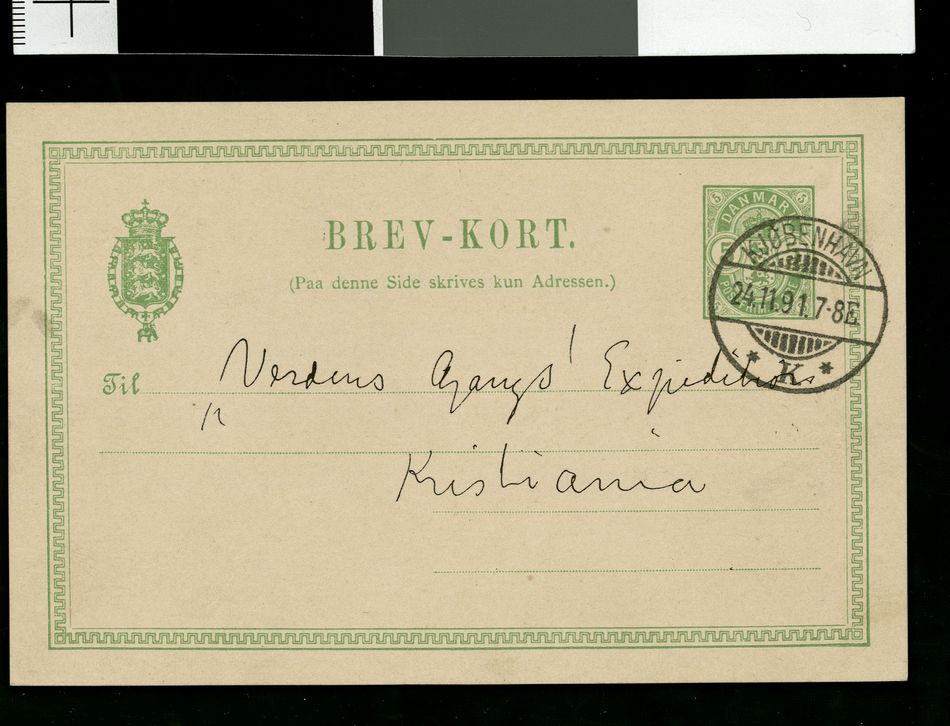 BREV-KORT.
(Paa denne Side skrives kun Adressen.)
5 DANMARK 5
KJØBENHAVN
24.11.91.7-8E
* K *
Til „Verdens Gangs“ Expedition
Kristiania